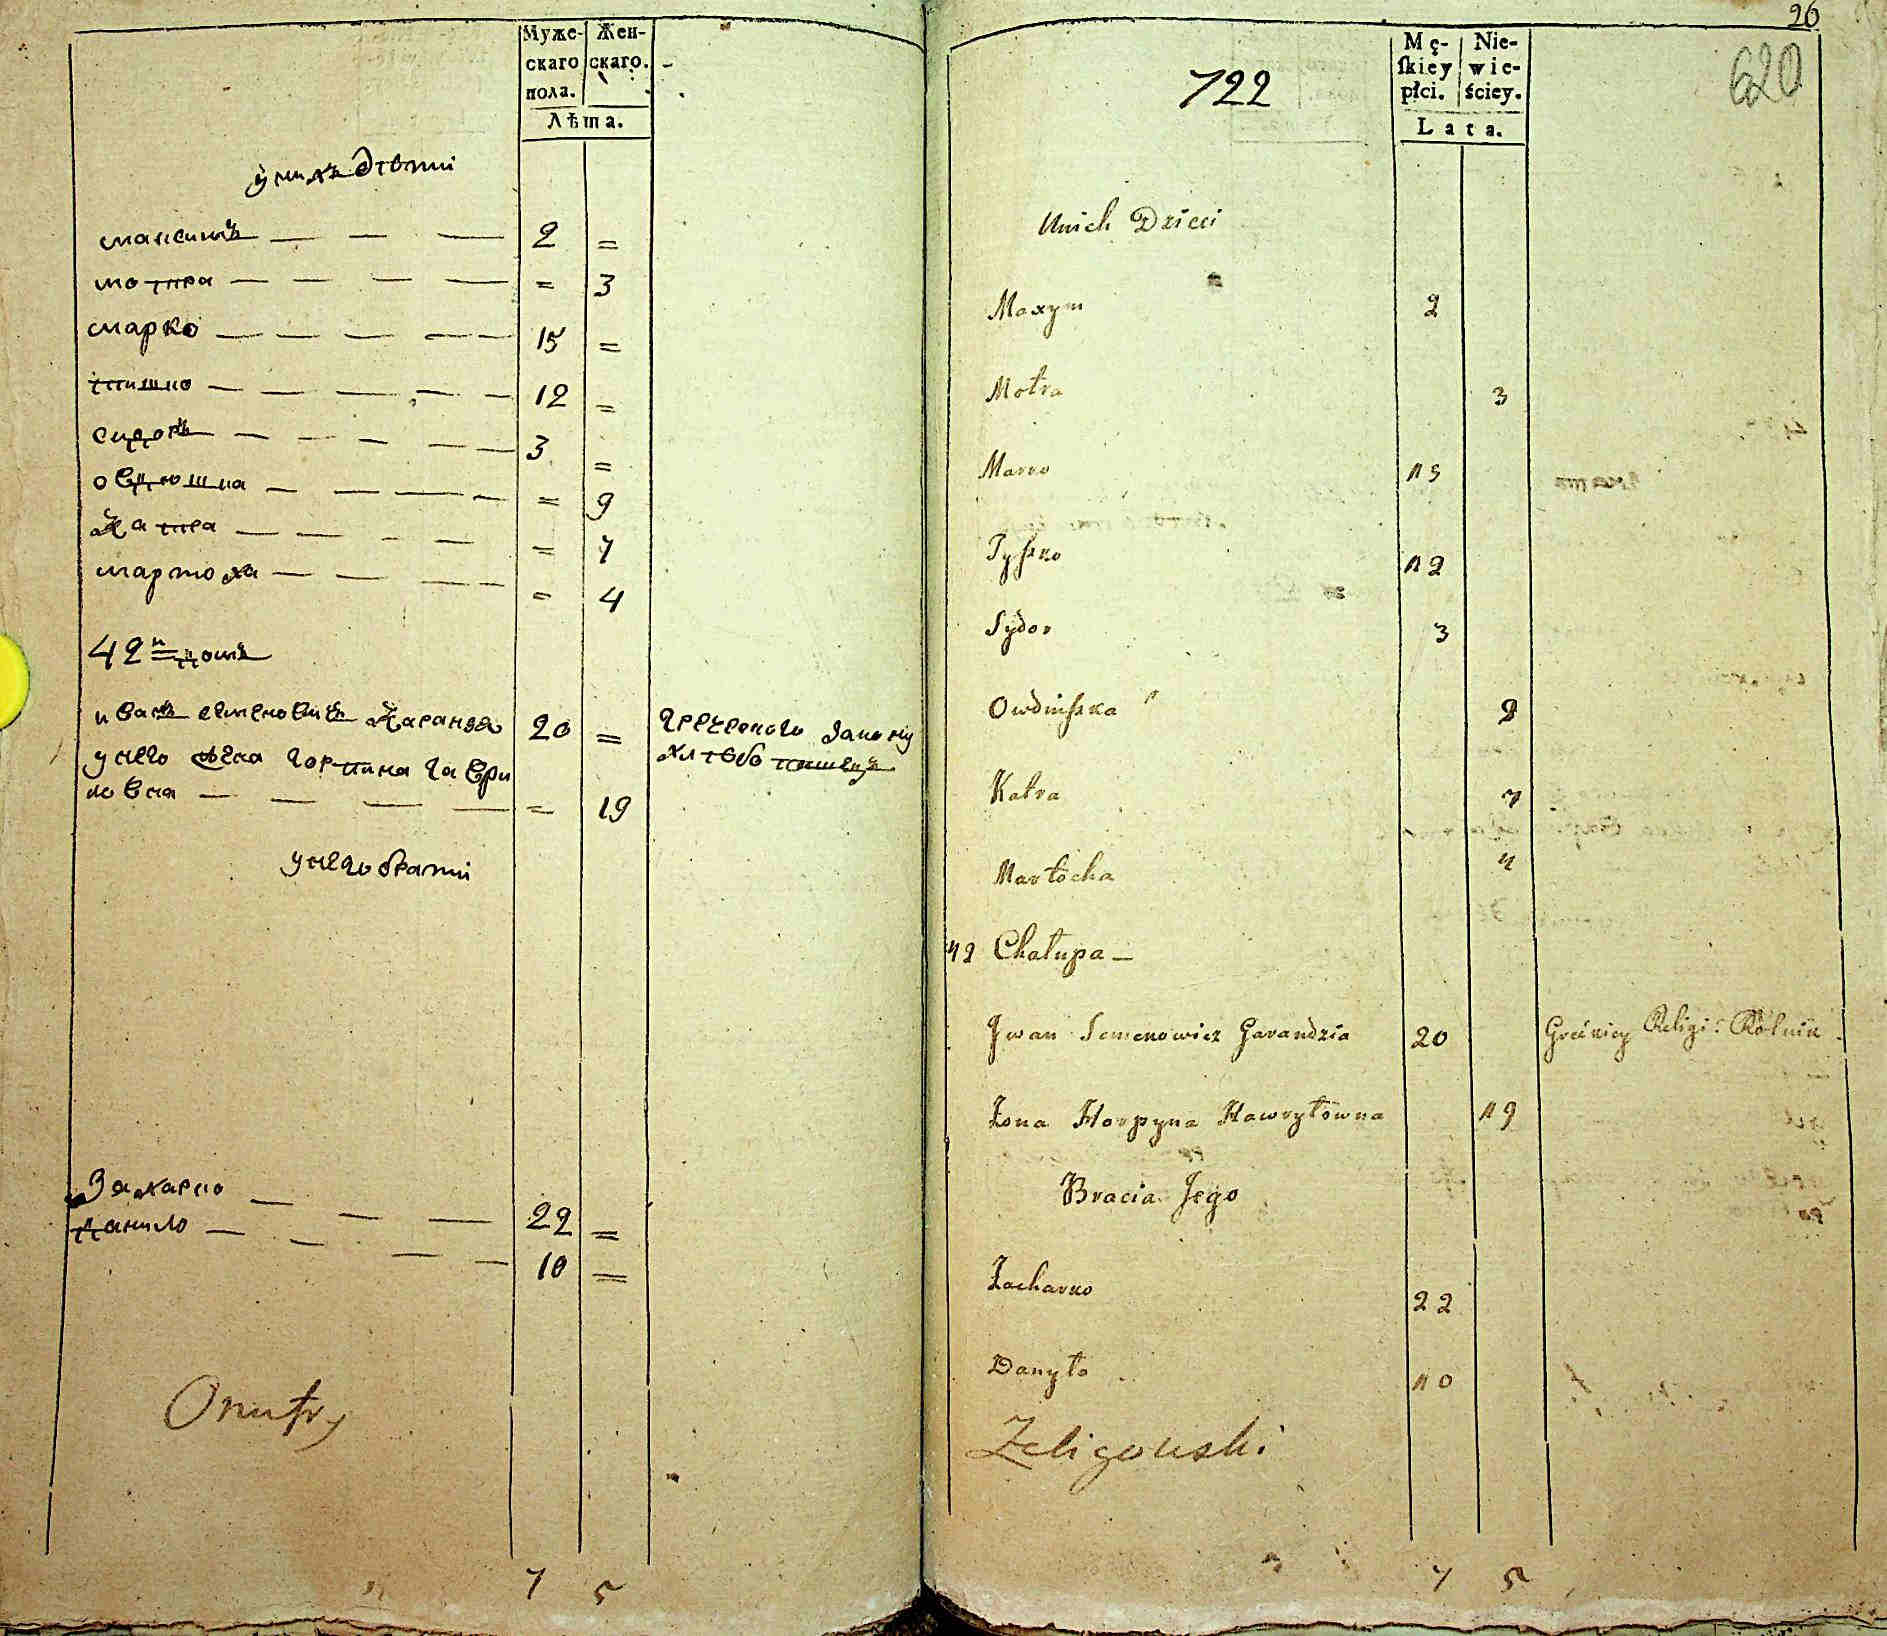 Муже-
скаго
пола.
Жен-
скаго.
Лѣта.
у них дѣти
максимъ 2 =
мотра = 3
марко 15 =
тишко 12 =
сидоръ 3 =
овдюшка = 9
катра = 7
мартоха = 4
42й домъ
иванъ семеновичъ 20 = греческого закону
у него жена горпина гаври хлѣбо пашецъ
ловна = 19
у него брати
Захарко 22 =
данило 10 =
Onufry
7 5
26
620
722
Mę-
ſkiey
płci.
Nie-
wie-
ściey.
Lata.
Unich Dzieci
Maxym 2
Motra 3
Marko 15
Tyszko 12
Sydor 3
Owdiuszka 9
Katra 7
Martocha 4
42 Chałupa —
Iwan Semenowicz Garandzia 20 Religi: Rolnik
Żona Horpyna Hawryłowna 19
Bracia Jego
Zacharko 22
Danyło 10
Zeligowski
7 5